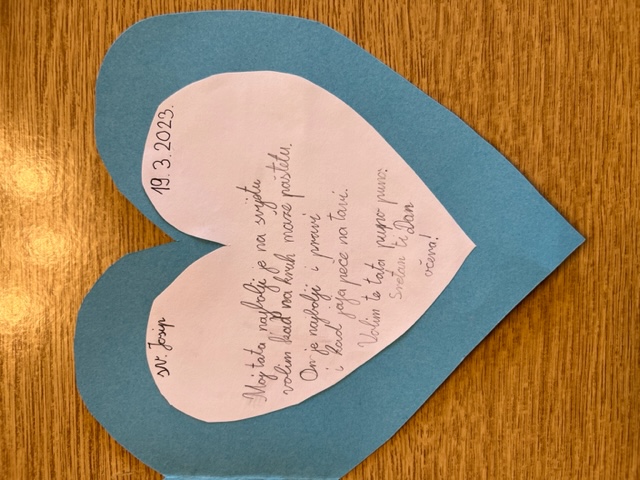 sv. Josip
19. 3. 2023.
Moj tata najbolji je na svijetu
volim kad na kruh maže paštetu.
On je najbolji i pravi
i kad jaja peče na tavi.
Volim te tata puno puno:
Sretan ti Dan
očeva!